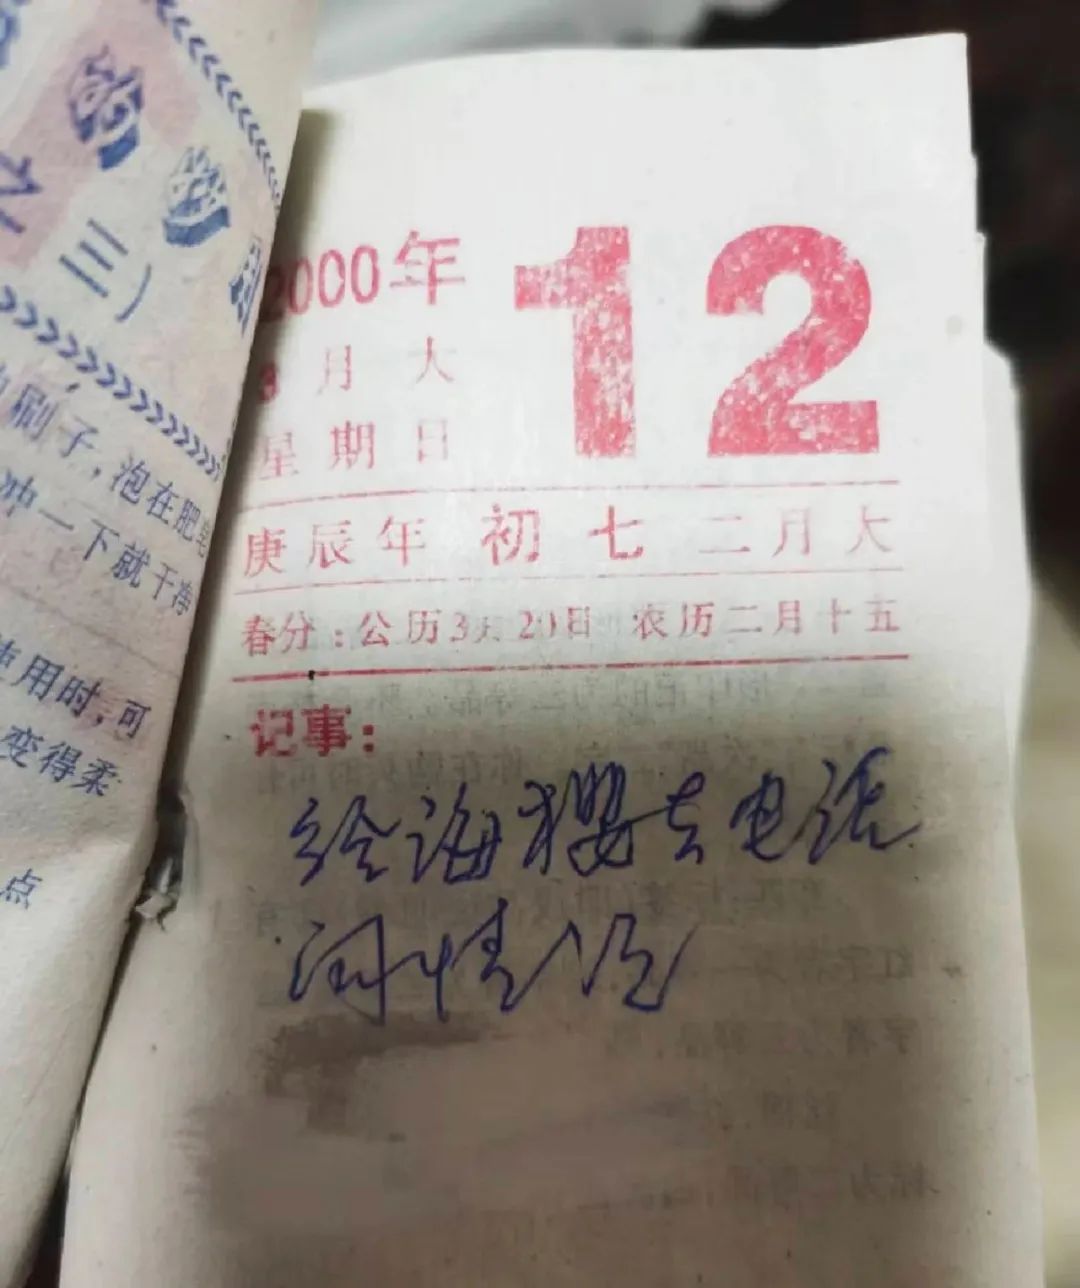 的
之三)
刷子,泡在肥皂
冲一下就干净
使用时,可
变得柔
点
2000年
12
3月大
星期日
庚辰年 初七 二月大
春分:公历3月20日 农历二月十五
记事:
给海樱去电话
问情况